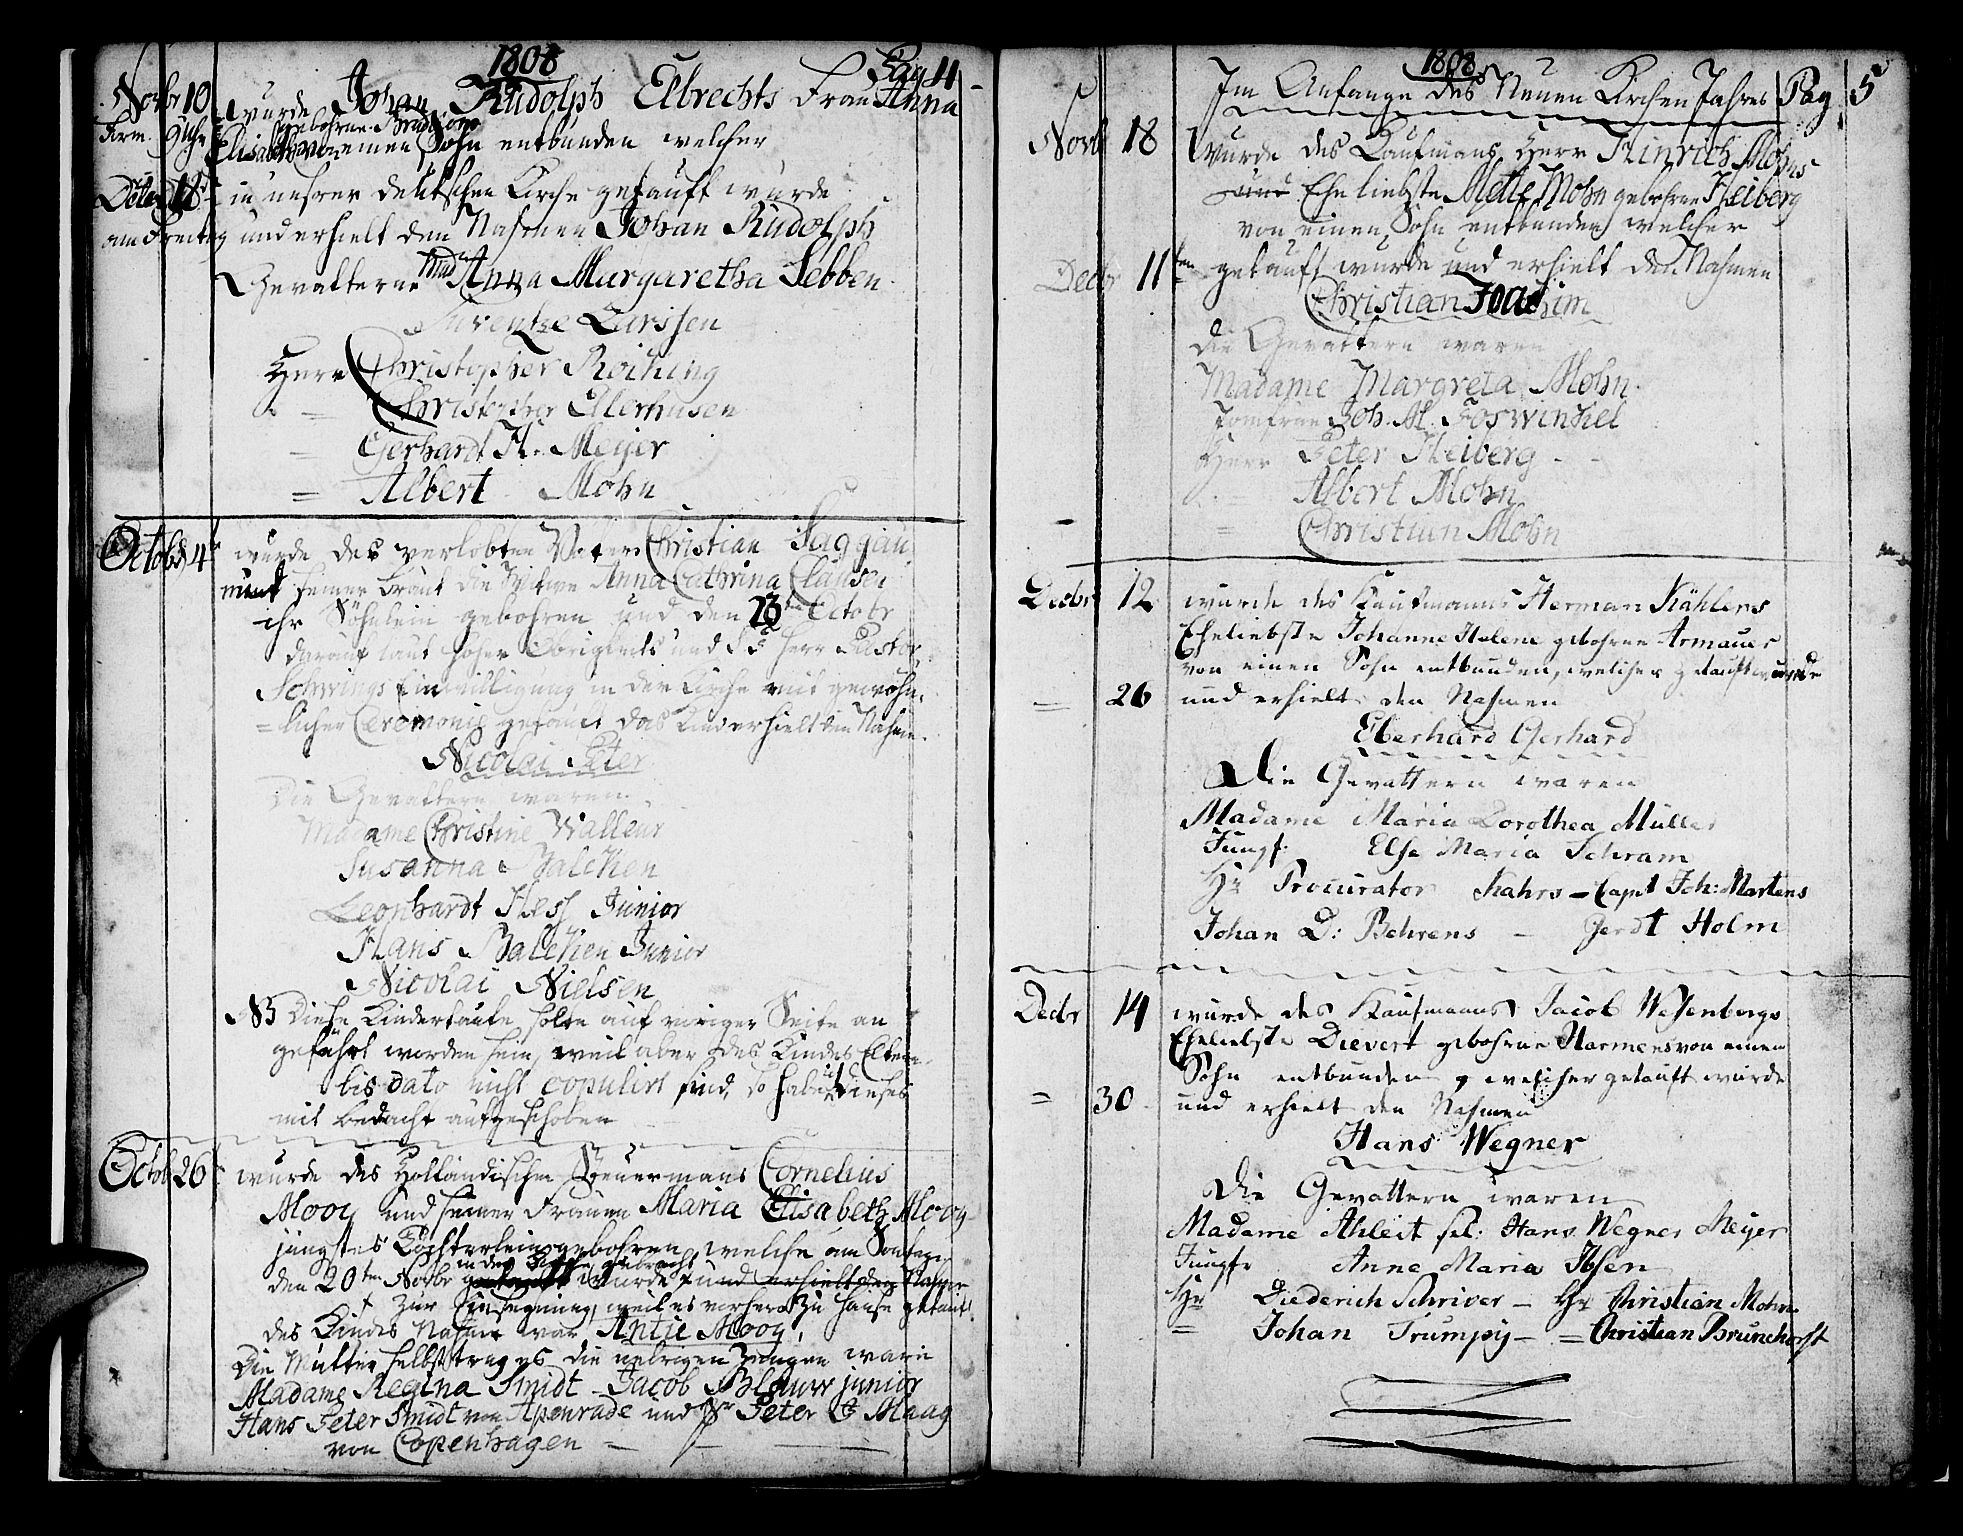 1808
Pag 4
Novbr 10 wurde Johan Rudolph Elbrechts Frau Anna
Elisabeth von einen Sohn entbunden welcher
in unsrer deutschen Kirche getauft wurde
am Freitag und erhielt den Nahmen Johan Rudolph
Gevattern Mad Anna Margaretha Sebben
Larssen
Herr Christopher Roihing
Christopher Ellerhusen
= Gerhardt H. Meijer
= Albert Mohn
Octobr 4 wurde des verlobten Christian Saggau
mit seiner Braut die Witwe Anna Cathrina Clausen
ihr Söhnlein gebohren und den 23 Octobr
darauf laut hoher Obrigkeits und Herr Pastor
Schwings Einwilligung in der Kirche mit gewöhn-
=licher Ceremonie getauft das Kind erhielt den Nahm.
Nicolai Peter
Die Gevattern waren
Madame Christine Walleur
Susanna Balchen
Leonhardt Hess Junior
Hans Balchen Junior
Nicolai Nielsen
NB Diese Kindertaufe solte auf voriger Seite an
geführt worden sein, weil aber des Kindes Eltern
bis dato nicht copulirt sind, so habe ich dieses
mit bedacht aufgeschoben
Octob 26 wurde des Holländischen Steuermans Cornelius
Mooy und seiner Frauen Maria Elisabeth Mooy
jüngstes Töchterlein gebohren, welche am Sontage
in der Kirche gebracht
den 20ten Novbr getauft wurde und erhielt den Nahmen
+ zur Einsegnung, weil es vorher zu Hause getauft
des Kindes Nahme war Antie Mooy.
Die Mutter selbst trug es die uebrigen Zeugen ware
Madame Regina Smidt Jacob Blaurr junior
Hans Peter Smidt von Apenrade und Sr Peter Maag
von Copenhagen
1808
Im Anfange des Neuen Kirchen Jahres Pag 5
Novb 18 Wurde des Kaufmans Herr Hinrich Mohns
Eheliebste Mette Mohn gebohrne Heiberg
von einen Sohn entbunden welcher
Decbr 11ten getauft wurde und erhielt den Nahmen
Christian Joachim
die Gevattern waren
Madame Margreta Mohn.
Jomfrue Joh. M. Foswinkel
Herr Peter Heiberg
Albert Mohn
= Christian Mohn
Decbr 12 wurde des Kaufmanns Herman Kählers
Eheliebste Johanne Helene gebohrne Armauer
von einen Sohn entbunden, welcher getauft wurde
= 26 und erhielt den Nahmen
Eberhard Gerhard
Die Gevattern waren
Madame Maria Dorothea Müller
Jungf: Else Maria Schram
Hr Procurator Kahrs - Capt Joh: Martens
Johan D: Behrens - Gerdt Holm
Decbr 14 wurde des Kaufmanns Jacob Wesenbergs
Eheliebste Dievert gebohrne Harmens von einen
Sohn entbunden, welcher getauft wurde
= 30 und erhielt den Nahmen
Hans Wegner
Die Gevattern waren
Madame Ahleit sel: Hans Wegner Meyer
Jungfr Anne Maria Ibsen
Hr Diederich Schriver - Hr Christian Mohn
= Johan Trumpy - = Christian Brunchorst